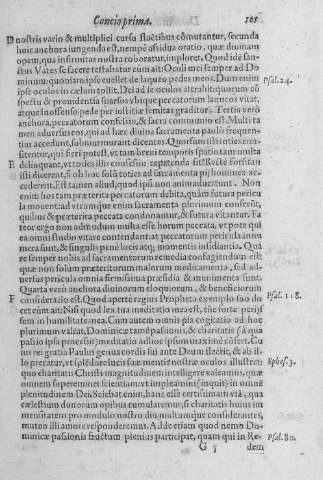 Concio prima. 105
D nostris vario & multiplici cursu fluctibus cõmutantur, secunda
huic anchora iungenda est, nempè assidua oratio, quæ diuinam
opem, qua infirmitas nostra roboratur, imploret. Quod idē san-
ctus Vates se facere testabatur cùm ait: Oculi mei semper ad Do-
minum: quoniam ipse euellet de laqueo pedes meos. Dum enim
ipse oculos in cælum tollit, Dei ad se oculos attrahit: quorum cõ
spectu & prouidentia
atque inoffenso pede per iustitiæ semitas graditur. Tertia verò
anchora, peccatorum confessio, & sacra communio est. Multi ta
men aduersus eos, qui ad hæc diuina sacramenta paulo frequen-
tius accedunt, submurmurant dicentes. Quorsum isti toties con-
fitentur, qui fieri potest, vt tam breui temporis spatio tam multa
E delinquant, vt toties illis confessio repetenda sit? Rectè forsitan
isti dicerent, si ob hoc solũ toties ad sacramenta pij homines ac-
cederent. Est tamen aliud, quod ipsi non animaduertunt. Non
enim hos tam præterita peccatorum debita, quàm futura pericu
la mouent: ad vtrumque enim sacramenta plurimum conferũt,
quibus & præterita peccata condonantur, & futura vitantur. Fa
teor ergo non admodum multa esse horum peccata, vt pote qui
ea omni studio vitare contendant: at peccatorum pericula innu
mera sunt, & singulis penè locis atq; momentis insidiantia. Qua
re semper nobis ad sacramentorum remedia confugiendum est:
quæ non solùm præteritorum malorum medicamenta, sed ad-
uersus pericula omnia firmissima præsidia & munimenta sunt.
Quarta verò anchora diuinorum eloquiorum, & beneficiorum
F consideratio est. Quod apertè regius Propheta exemplo suo do
cet cùm ait: Nisi quod lex tua meditatio mea est, tũc fortè perijs
sem in humilitate mea. Cùm autem omnis pia cogitatio ad hoc
plurimum valeat, Dominicæ tamē passionis, & charitatis (à qua
passio ipsa processit) meditatio ad hoc ipsum maximè cõfert. Cu
ius rei gratia Paulus genua cordis sui ante Deum flectit, & ab il-
lo precatur, vt splēdore lucis suæ mentis nostræ oculos illustret:
quo charitatis Christi magnitudinem intelligere valeamus, quæ
omnem supereminet scientiam: vt impleamini (inquit) in omnē
plenitudinem Dei. Sciebat enim, hanc esse certissimam viã, qua
cælestium donorum opibus cumulamur, si charitatis huius im
mensitatem pro modulo nostro diu multumque considerantes,
mutuo illi amore responderemus. Adde etiam quod nemo Do-
minicæ passionis fructum plenius participat, quam qui in Re-
G 5 dem
Psal. 24.
Psal. 118.
Ephes. 3.
Psal. 80.